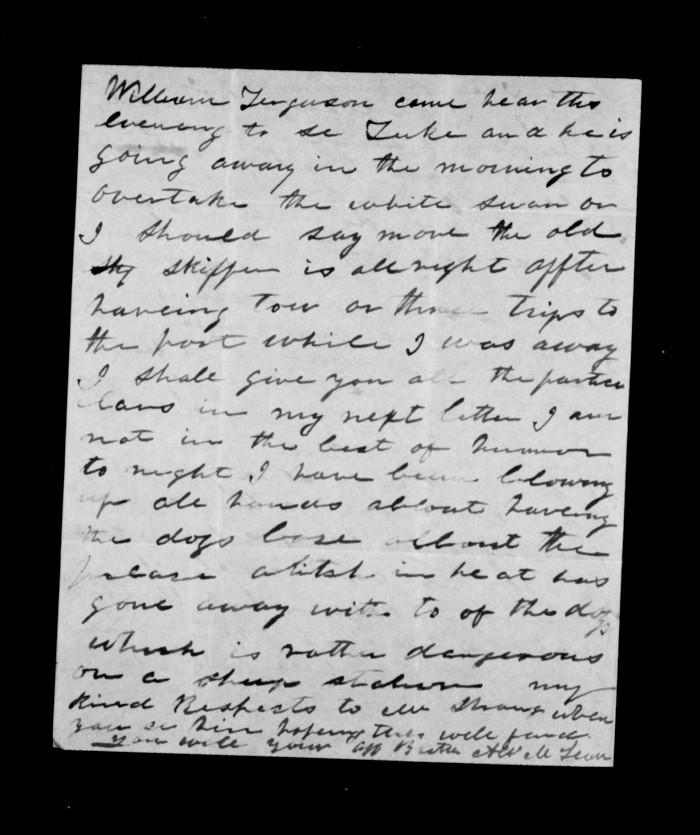 William Ferguson came hear this
evening to se Luke and he is
going away in the morning to
overtake the white swan or
I should say move the old
skipper is all right affter
haveing tow or three trips to
the port while I was away
I shall give you all the partic
lars in my next letter I am
not in the best of humor
to night I have been blowing
up all hands about haveing
the dogs lose about the
please a bitch in heat has
gone away with to of the dogs
which is rather dangerous
on a sheep station my
kind Respects to Mr Strang when
you se him hopeing this will find
you well your aff Brother McLean